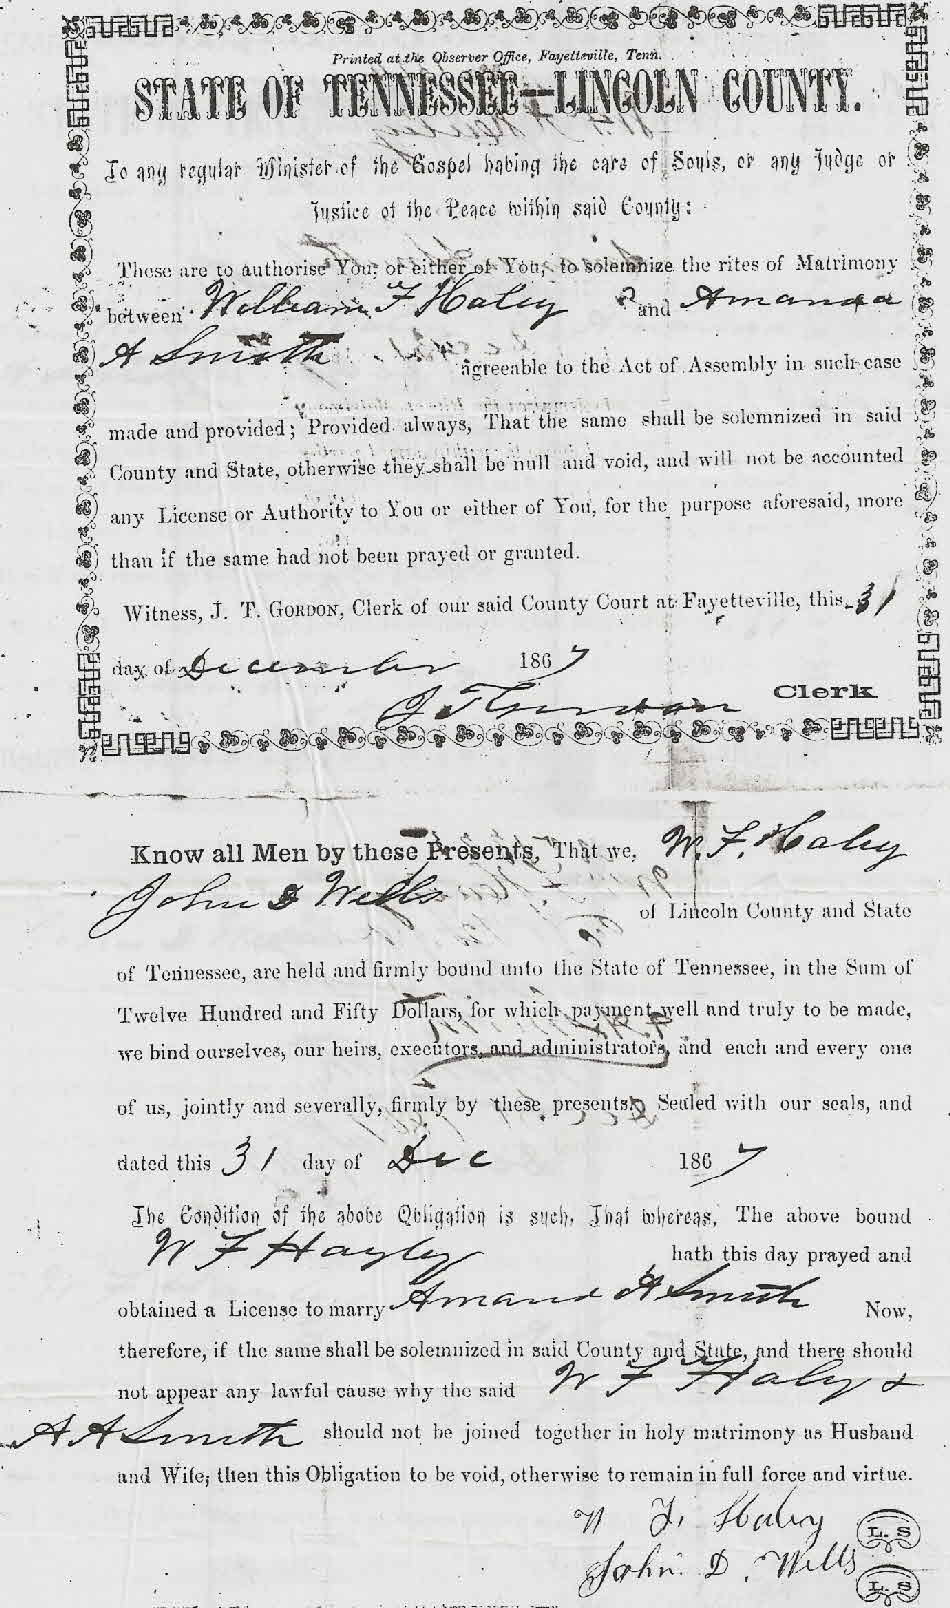 Printed at the Observer Office, Fayetteville, Tenn.
STATE OF TENNESSEE—LINCOLN COUNTY.
To any regular Minister of the Gospel having the care of Souls, or any Judge or
Justice of the Peace within said County:
These are to authorise You, or either of You, to solemnize the rites of Matrimony
between William F Haley and Amanda
A Smith agreeable to the Act of Assembly in such case
made and provided; Provided always, That the same shall be solemnized in said
County and State, otherwise they shall be null and void, and will not be accounted
any License or Authority to You or either of You, for the purpose aforesaid, more
than if the same had not been prayed or granted.
Witness, J. T. GORDON, Clerk of our said County Court at Fayetteville, this 31
day of December 1867
J T Gordon Clerk
Know all Men by these Presents, That we, W. F. Haley
John D Wells of Lincoln County and State
of Tennessee, are held and firmly bound unto the State of Tennessee, in the Sum of
Twelve Hundred and Fifty Dollars, for which payment well and truly to be made,
we bind ourselves, our heirs, executors, and administrators, and each and every one
of us, jointly and severally, firmly by these presents. Sealed with our seals, and
dated this 31 day of Dec 1867
The Condition of the above Obligation is such, That whereas, The above bound
W F Hayley hath this day prayed and
obtained a License to marry Amand A Smith Now,
therefore, if the same shall be solemnized in said County and State, and there should
not appear any lawful cause why the said W F Haley &
A A Smith should not be joined together in holy matrimony as Husband
and Wife, then this Obligation to be void, otherwise to remain in full force and virtue.
W F. Haley L. S
John. D. Wells L. S